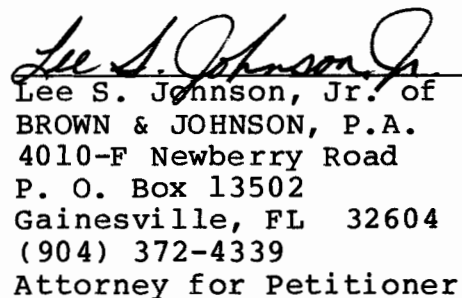 Lee S. Johnson, Jr.
Lee S. Johnson, Jr. of
BROWN & JOHNSON, P.A.
4010-F Newberry Road
P. O. Box 13502
Gainesville, FL 32604
(904) 372-4339
Attorney for Petitioner